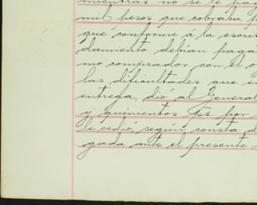 mientras no se le pag
mil pesos que cobraba p
que conforme á la escri
damiento debian paga
mo comprador con el o
las dificultades que en
entrega, dió al General
y quinientos fs. por
le cedió, según consta d
gada ante el presente